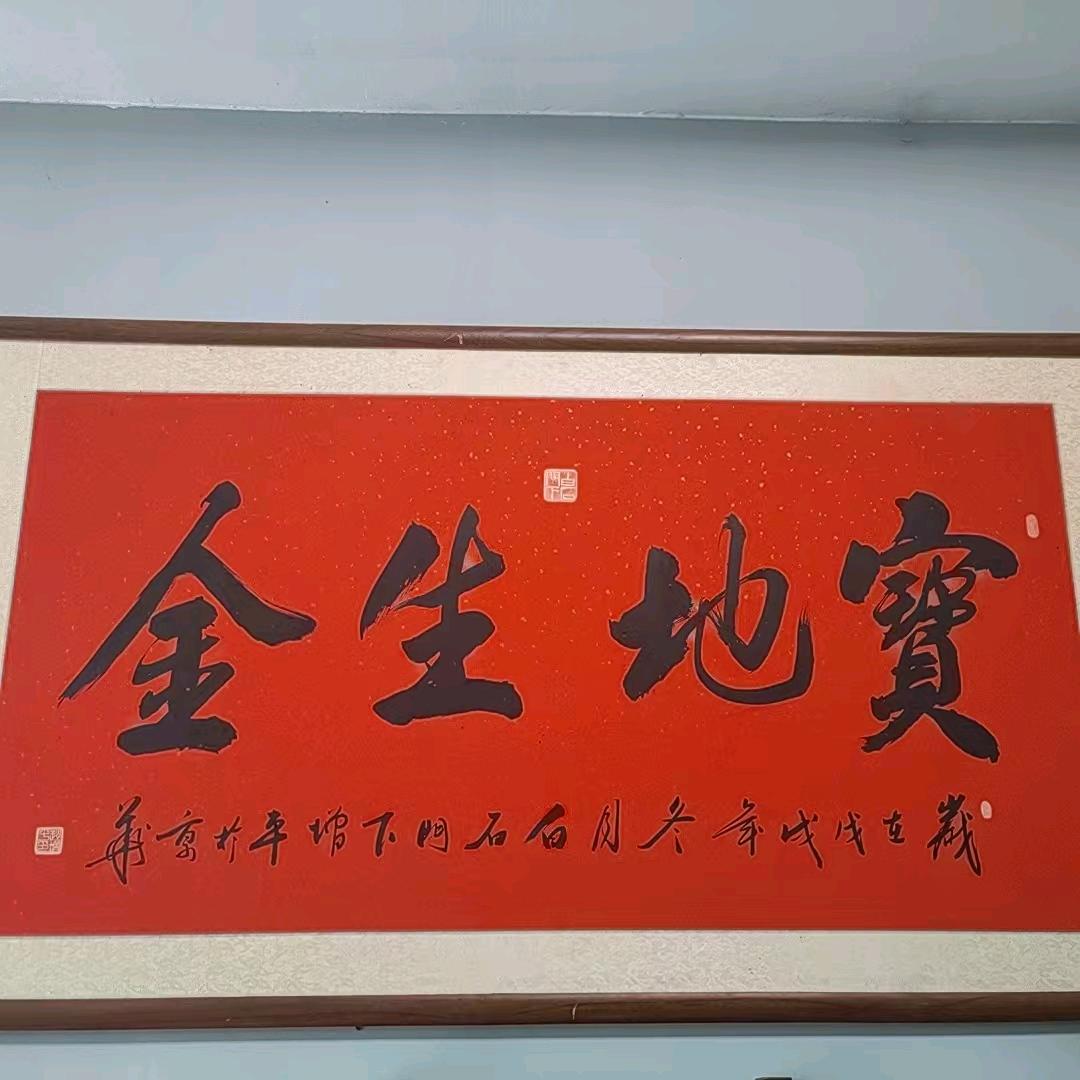 寶地生金
歲在戊戌年冬月白石門下增平於京華